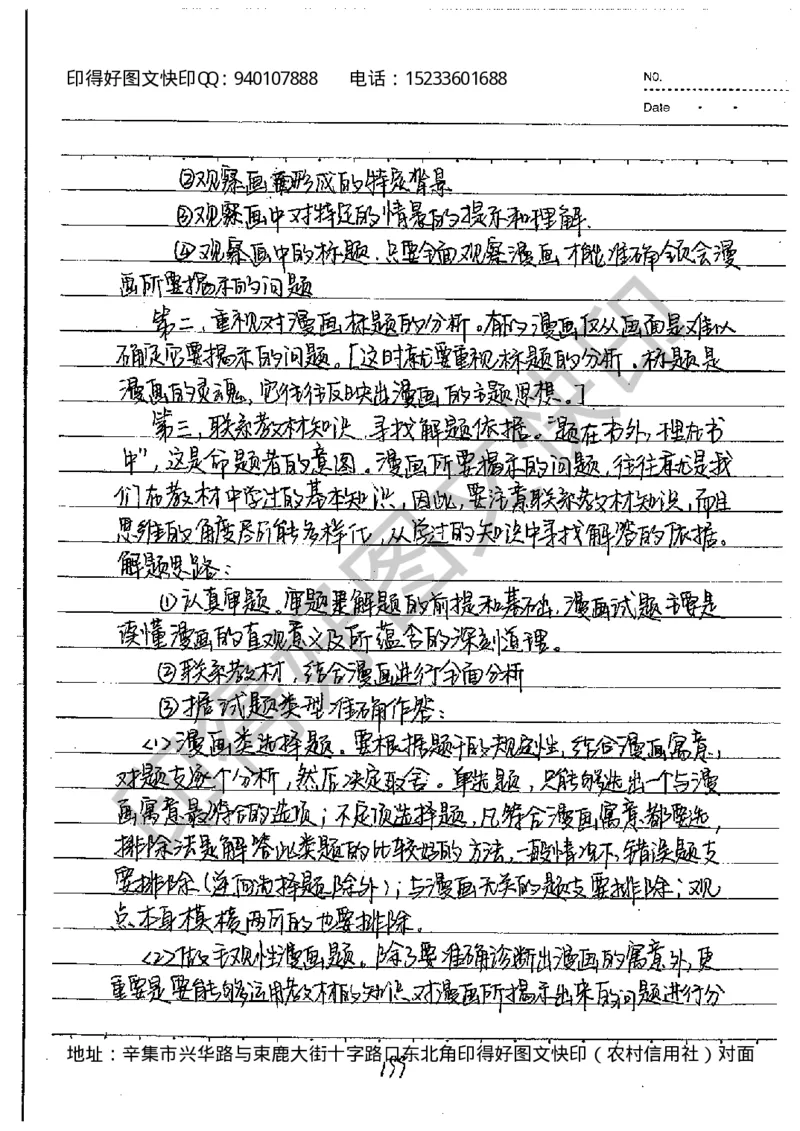 印得好图文快印QQ：940107888 电话：15233601688
NO.
Date
②观察画面形成的特定背景
③观察画中对特定的情景的提示和理解.
④观察画中的标题.只要全面观察漫画才能准确领会漫
画所要揭示的问题
第二，重视对漫画标题的分析。有的漫画仅从画面是难以
确定它要揭示的问题。[这时就要重视标题的分析。标题是
漫画的灵魂，它往往反映出漫画的主题思想。]
第三，联系教材知识 寻找解题依据。“题在书外，理在书
中”，这是命题者的意图。漫画所要揭示的问题，往往就是我
们在教材中学过的基本知识，因此，要注意联系教材知识，而且
思维的角度尽可能多样化，从学过的知识中寻找解答的依据。
解题思路：
①认真审题。审题是解题的前提和基础，漫画试题主要是
读懂漫画的直观意义及所蕴含的深刻道理。
②联系教材，结合漫画进行全面分析
③据试题类型准确作答：
<1>漫画类选择题。要根据题干的规定性，结合漫画寓意，
对题支逐个分析，然后决定取舍。单选题，只能够选出一个与漫
画寓意最符合的选项；不定项选择题，凡符合漫画寓意都要选，
排除法是解答此类题的比较好的方法，一般情况下，错误题支
要排除（逆向选择题除外）；与漫画无关的题支要排除；观
点本身模棱两可的也要排除。
<2>做主观性漫画题。除了要准确诊断出漫画的寓意外，更
重要是要能够运用教材的知识对漫画所揭示出来的问题进行分
地址：辛集市兴华路与束鹿大街十字路口东北角印得好图文快印（农村信用社）对面
印得好图文快印